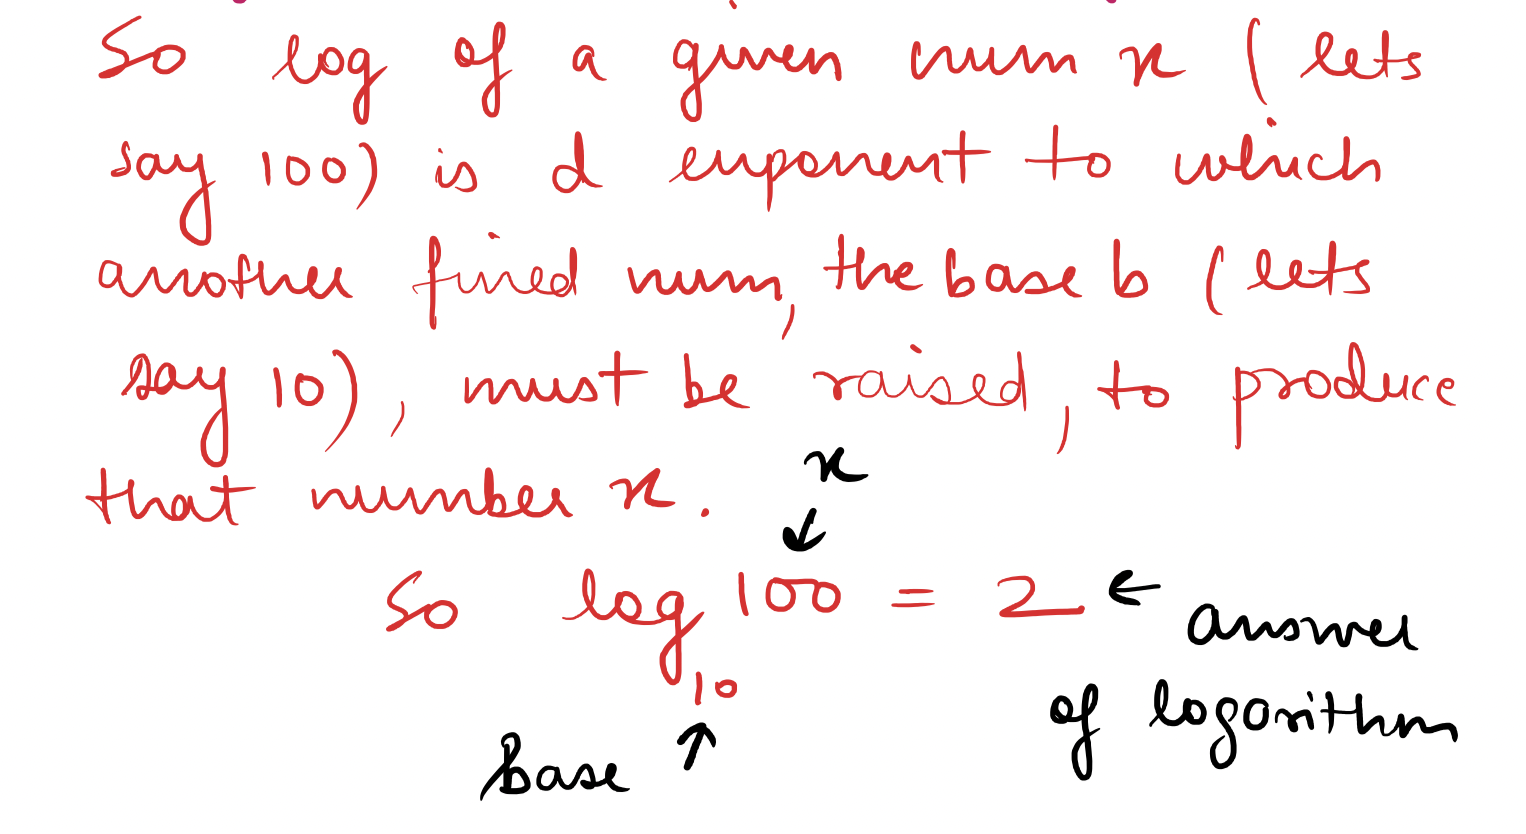 So log of a given num x (lets
say 100) is d exponent to which
another fixed num, the base b (lets
say 10), must be raised, to produce
that number x.
x
↓
So log₁₀ 100 = 2 ← answer
of logorithm
base ↑